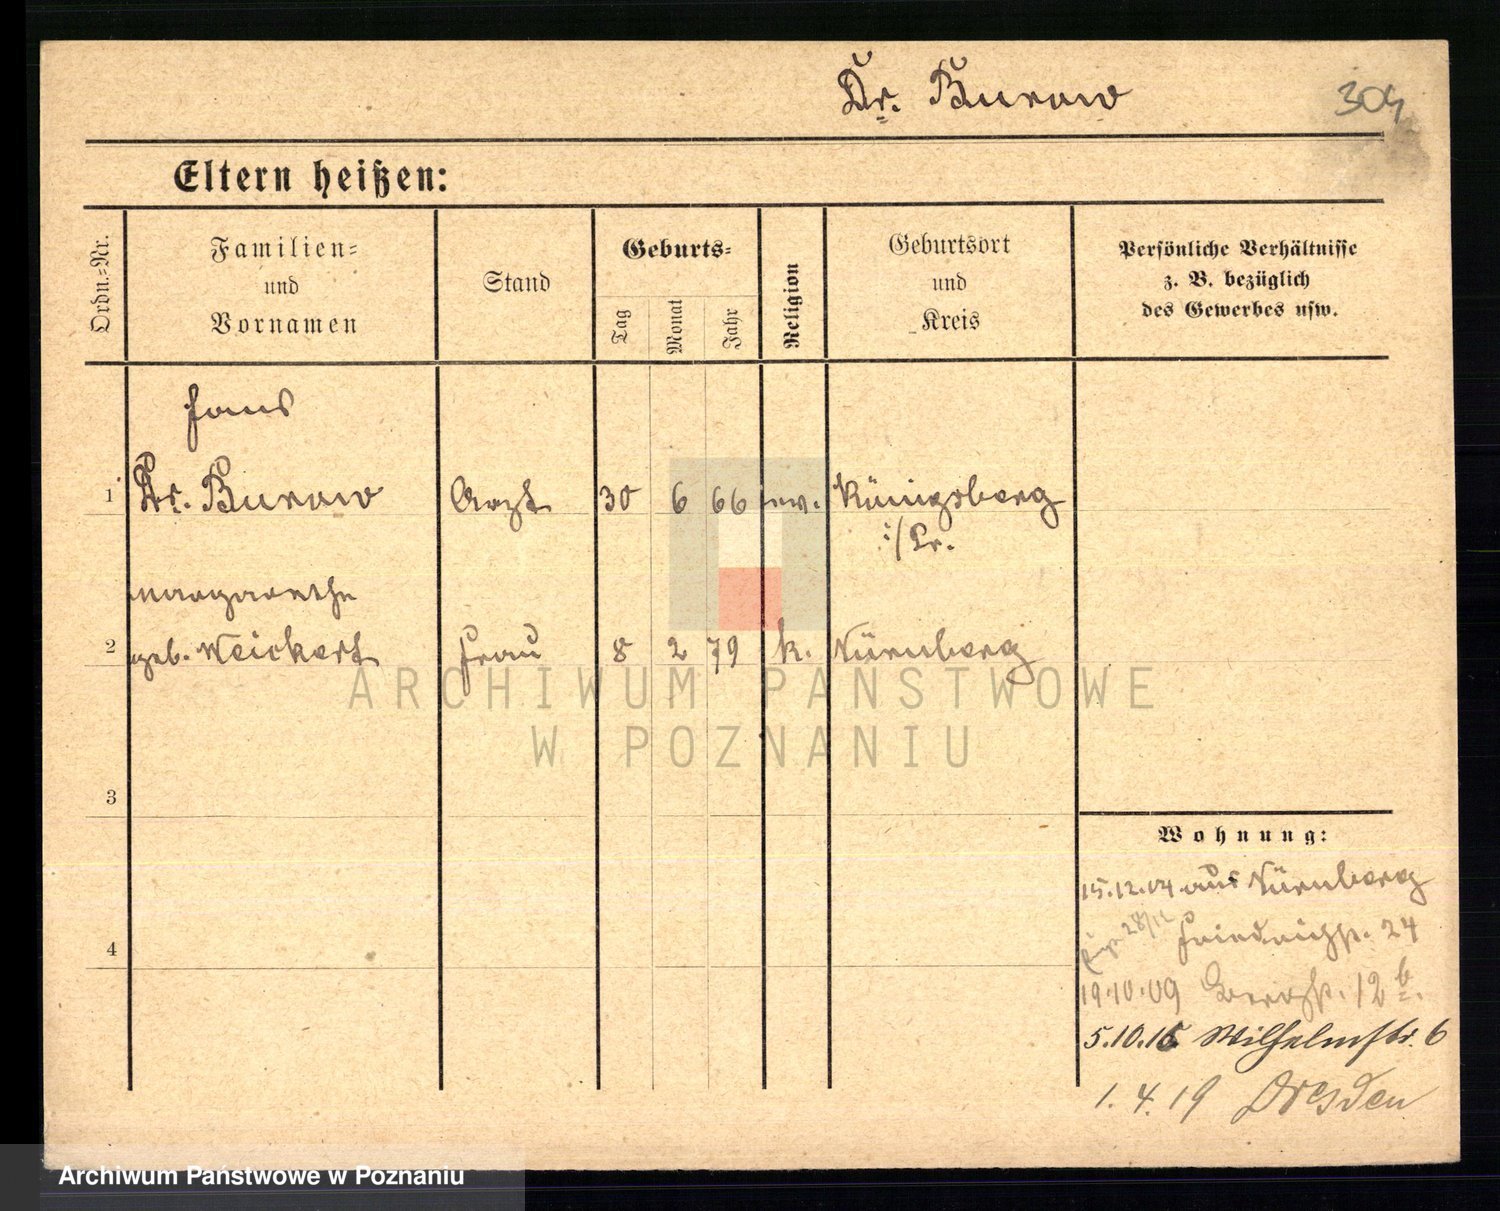 Dr. Burow
304
Eltern heißen:
Ordn.=Nr.
Familien=
und
Vornamen
Stand
Geburts=
Tag
Monat
Jahr
Religion
Geburtsort
und
Kreis
Persönliche Verhältnisse
z. B. bezüglich
des Gewerbes usw.
Hans
1 Dr. Burow Arzt 30 6 66 ev. Königsberg
i/Pr.
Margarethe
2 geb. Weickert Frau 8 2 79 k. Nürnberg
3
4
Wohnung:
15.12.04 aus Nürnberg
28/11 Friedrichstr. 24
19.10.09 Bergstr. 12 b.
5.10.15 Wilhelmstr. 6
1.4.19 Dresden
ARCHIWUM PAŃSTWOWE
W POZNANIU
Archiwum Państwowe w Poznaniu